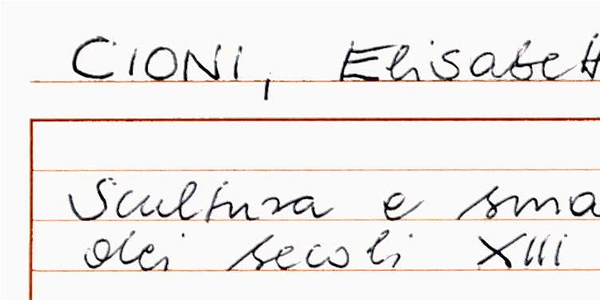 CIONI, Elisabett
Scultura e sma
dei secoli XIII